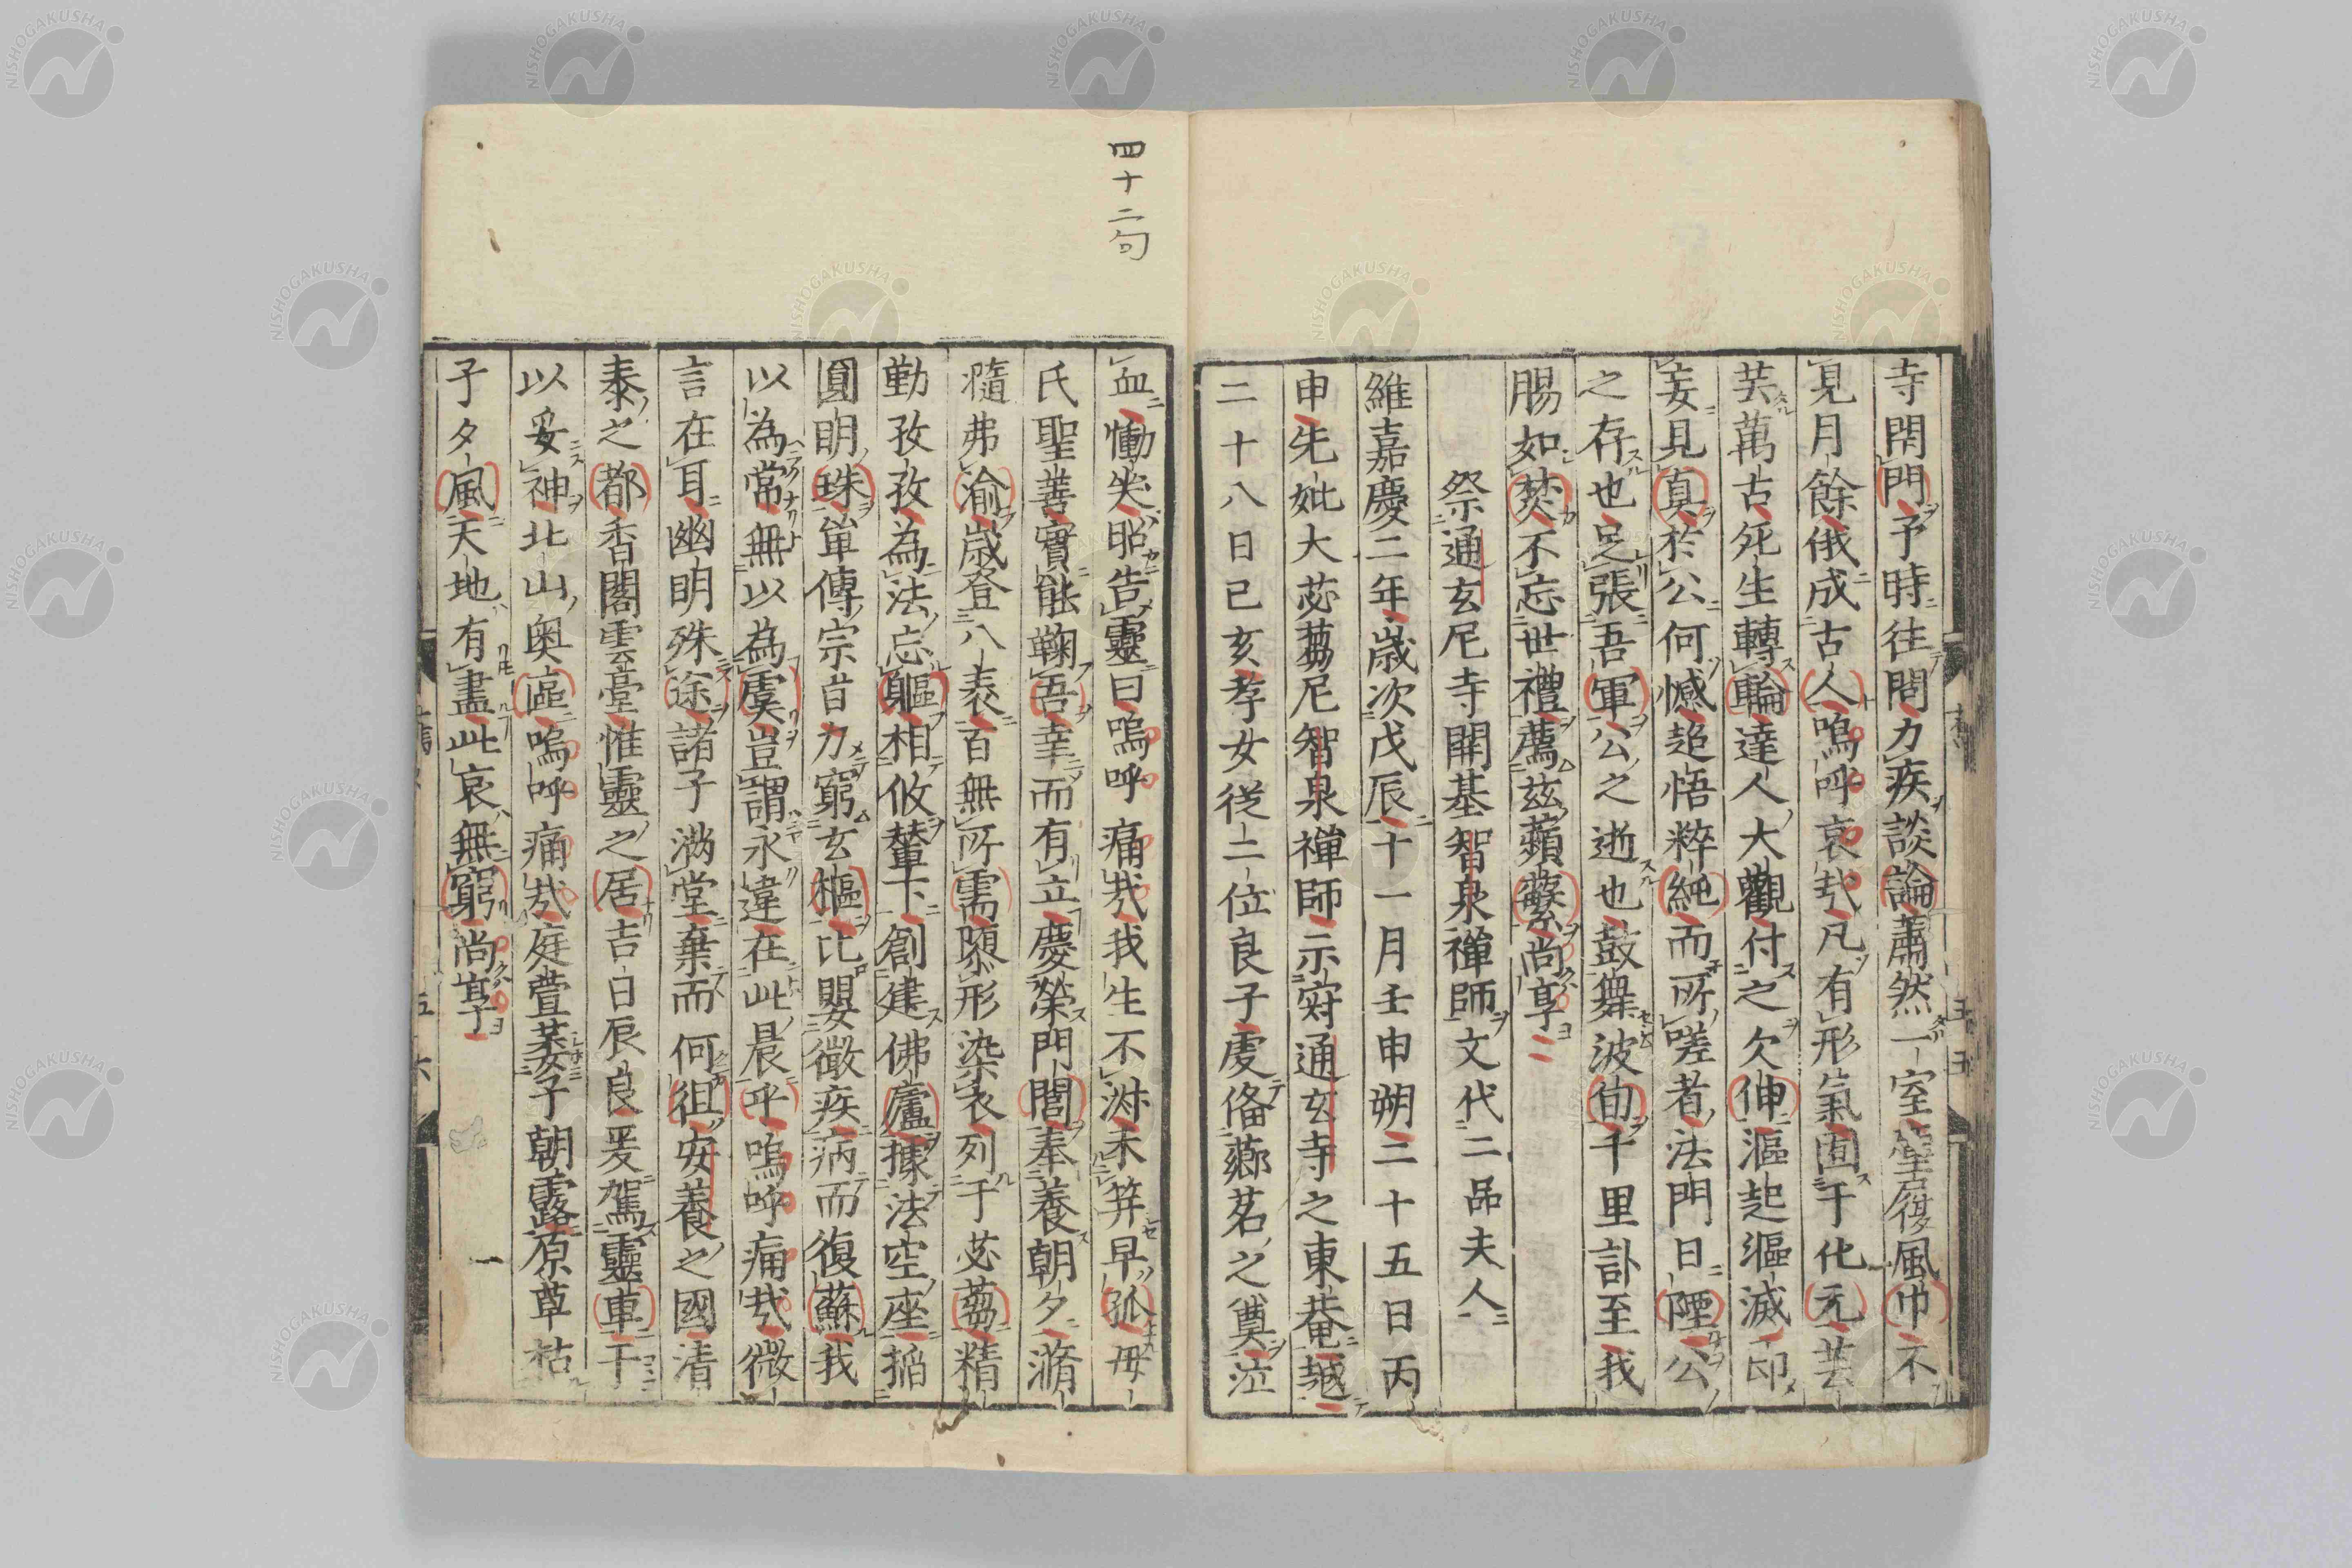 寺閑門予時往問力疾談論蕭然一室壁履風巾不
見月餘俄成古人嗚呼哀哉凡有形氣囿于化元芸
芸萬古死生轉輪達人大觀付之欠伸漚起漚滅
妄見真於公何憾超悟粹純而所嗟者法門日陻公
之存也足張吾軍公之逝也鼓舞波旬千里訃至我
腸如焚不忘世禮薦茲蘋蘩尚享
祭通玄尼寺開基智泉禪師文代二品夫人
維嘉慶二年歲次戊辰十一月壬申朔二十五日丙
申先妣大苾蒭尼智泉禪師示寂通玄寺之東菴越
二十八日己亥孝女從二位良子虔俻薌茗之奠泣
四十二句
血慟失昭告靈曰嗚呼痛哉我生不淑未笄早孤毋
氏聖善實能鞠吾幸而有立慶榮門閭奉養朝夕滫
瀡弗渝歲登八袠百無所需隳形染衣列于苾蒭精
勤孜孜為法忘軀相攸輦下創建佛廬據法空座搯
圓明珠單傳宗旨力窮玄樞比嬰微疾病而復蘇我
以為常無以為虞豈謂永違在此晨乎嗚呼痛哉微
言在耳幽明殊途諸子滿堂棄而何徂安養之國清
泰之都香閣雲臺惟靈之居吉日辰良爰駕靈車于
以妥神北山奧區嗚呼痛哉庭萱萎子朝露原草枯
子夕風天地有盡此哀無窮尚享